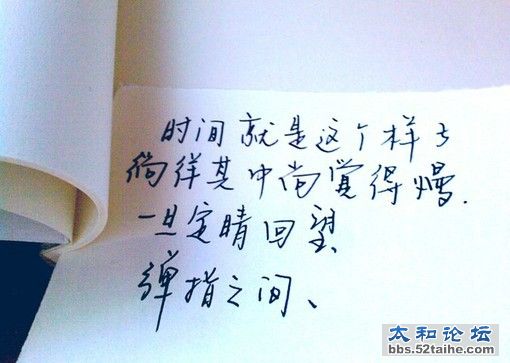 时间就是这个样子
徜徉其中尚觉得慢.
一旦定睛回望、
弹指之间、
太和论坛
bbs.52taihe.com